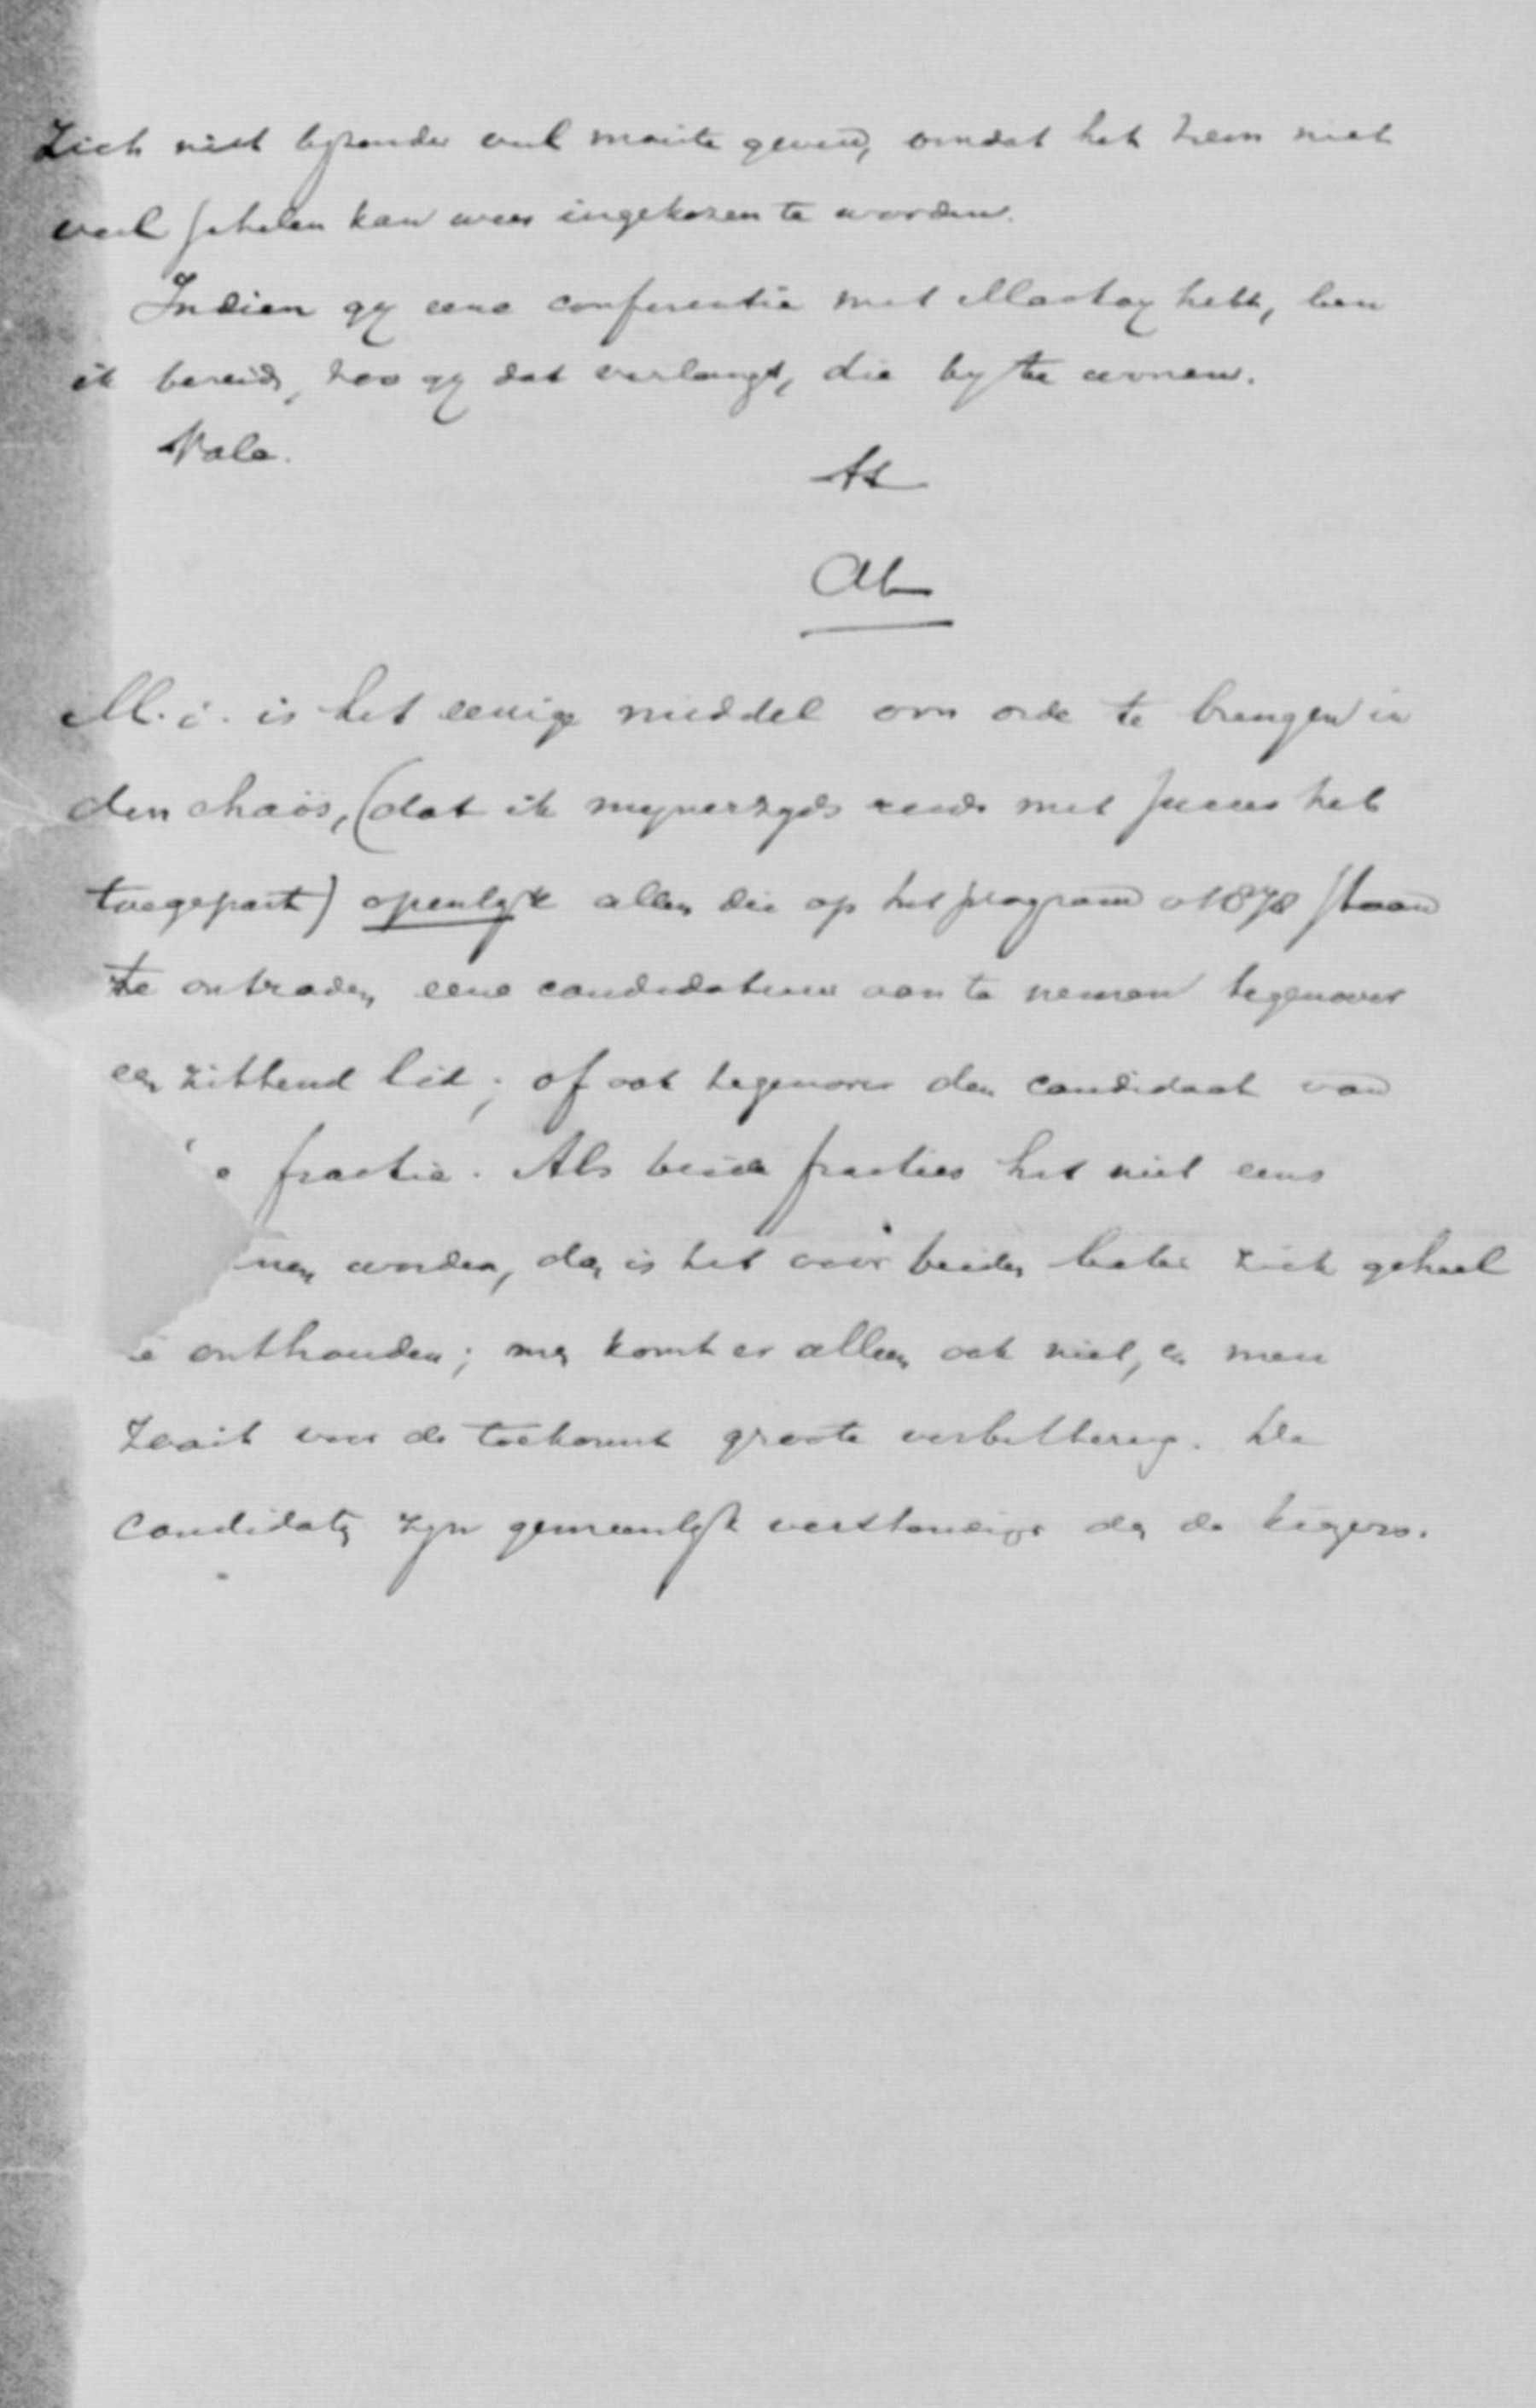 zich niet byzonder veel moeite geven, omdat het hem niet
veel schelen kan weer ingekozen te worden.
Indien gy eene conferentie met Mackay hebt, ben
ik bereid, zoo gy dat verlangt, die by te wonen.
Vale.
tt
AL
M.i. is het eenige middel om orde te brengen in
den chaös, (dat ik mynerzyds reeds met succes heb
toegepast) openlyk allen die op het program v 1878 staan
te ontraden eene candidatuur aan te nemen tegenover
een zittend lid; of ook tegenover den candidaat van
e fractie. Als beide fracties het niet eens
nen worden, dan is het voor beiden beter zich geheel
te onthouden; men komt er alleen ook niet, en men
zaait voor de toekomst groote verbittering. De
candidaten zyn gemeenlyk verstandiger dan de kiezers.